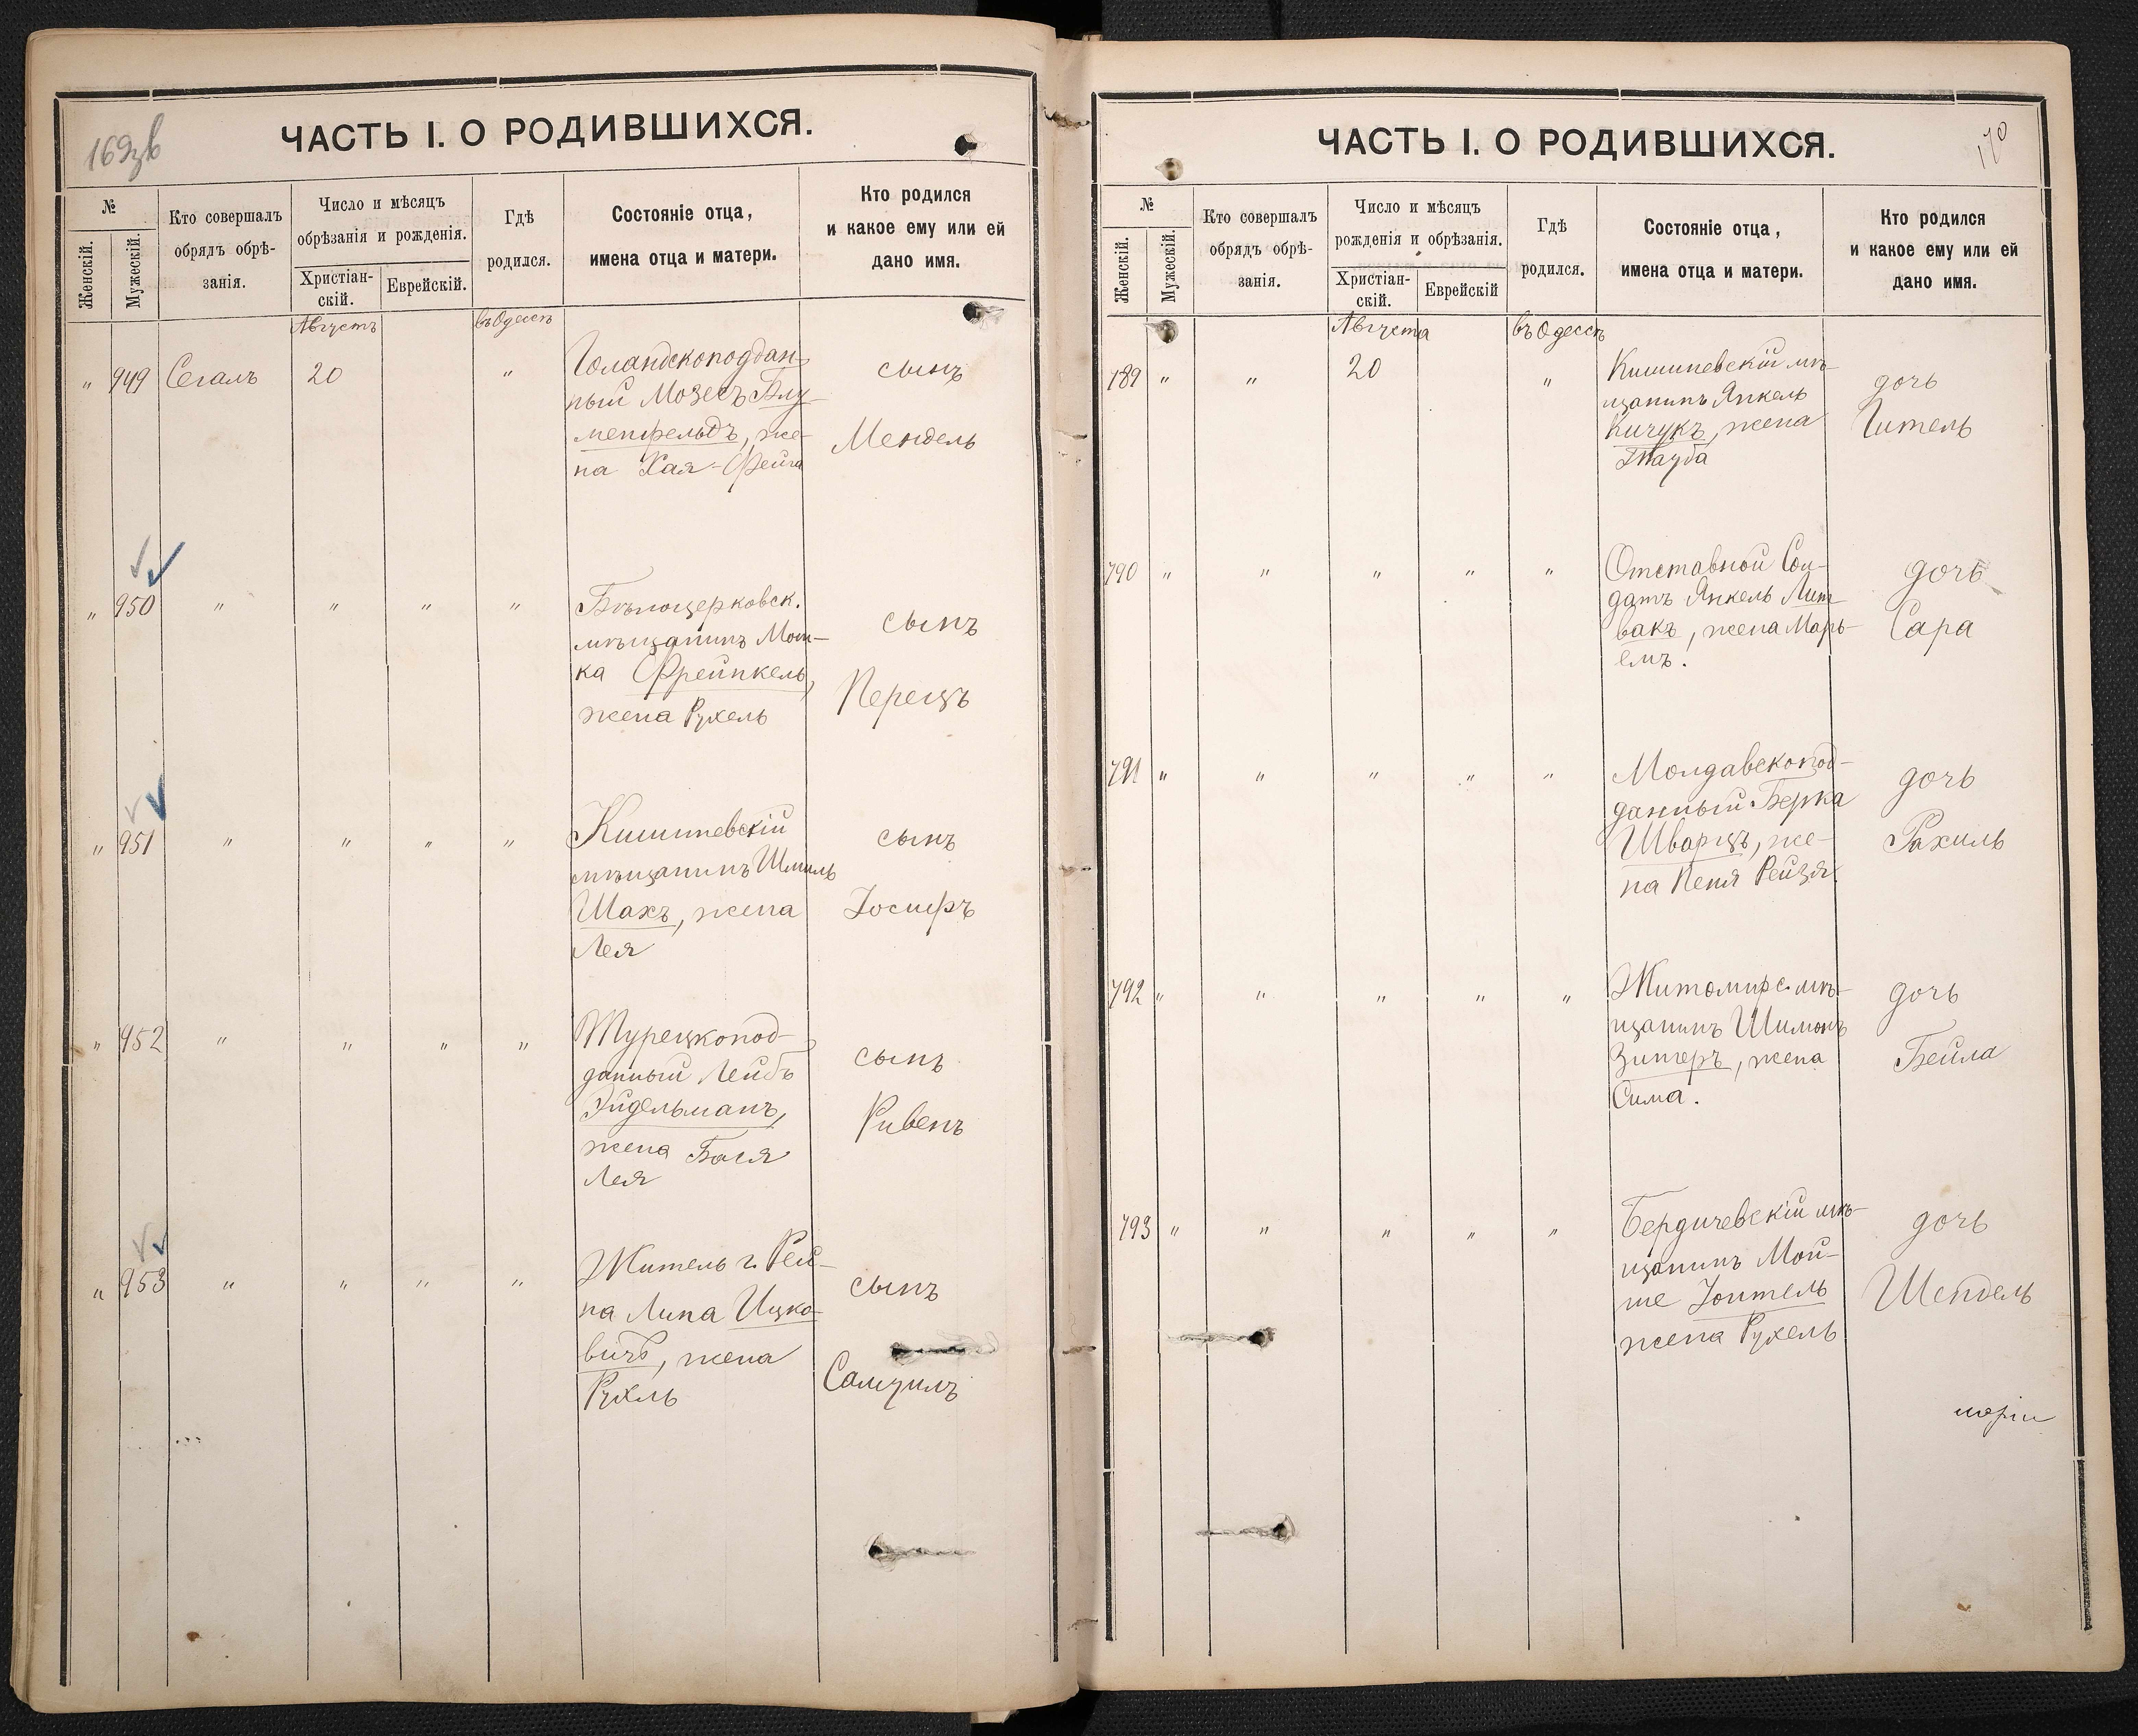 169зв
ЧАСТЬ I. О РОДИВШИХСЯ.
№
Женскій.
Мужескій.
Кто совершалъ
обрядъ обрѣ-
занія.
Число и мѣсяцъ
обрѣзанія и рожденія.
Христіан-
скій.
Еврейскій.
Гдѣ
родился.
Состояніе отца,
имена отца и матери.
Кто родился
и какое ему или ей
дано имя.
Августъ въ Одессѣ
" 949 Сегалъ 20 "
Голандскоподдан-
ный Мозесъ Блу-
менфельдъ, же-
на Хая-Фейга
сынъ
Мендель
" 950 " " " "
Бѣлоцерковск.
мѣщанинъ Мош-
ка Фрейнкель,
жена Рухель
сынъ
Перецъ
" 951 " " " "
Кишиневскій
мѣщанинъ Шмиль
Шахъ, жена
Лея
сынъ
Іосифъ
" 952 " " " "
Турецкопод-
данный Лейбъ
Эйдельманъ,
жена Бася
Лея
сынъ
Рувенъ
" 953 " " " "
Житель г. Рей-
на Липа Ицко-
вичъ, жена
Рухль
сынъ
Самуилъ
170
ЧАСТЬ I. О РОДИВШИХСЯ.
№
Женскій.
Мужескій.
Кто совершалъ
обрядъ обрѣ-
занія.
Число и мѣсяцъ
рожденія и обрѣзанія.
Христіан-
скій.
Еврейскій
Гдѣ
родился.
Состояніе отца,
имена отца и матери.
Кто родился
и какое ему или ей
дано имя.
Августа въ Одессѣ
789 " " 20 "
Кишиневскій мѣ-
щанинъ Янкель
Кичукъ, жена
Тауба
дочь
Гитель
790 " " " " "
Отставной Сол-
датъ Янкель Лит-
вакъ, жена Марь-
емъ.
дочь
Сара
791 " " " " "
Молдавскопод-
данный Берка
Шварцъ, же-
на Пеня Рейзя.
дочь
Рахиль
792 " " " " "
Житомирс. мѣ-
щанинъ Шимонъ
Зингеръ, жена
Сима.
дочь
Бейла
793 " " " " "
Бердичевскій мѣ-
щанинъ Мой-
ше Зонтель
жена Рухель
дочь
Шендель